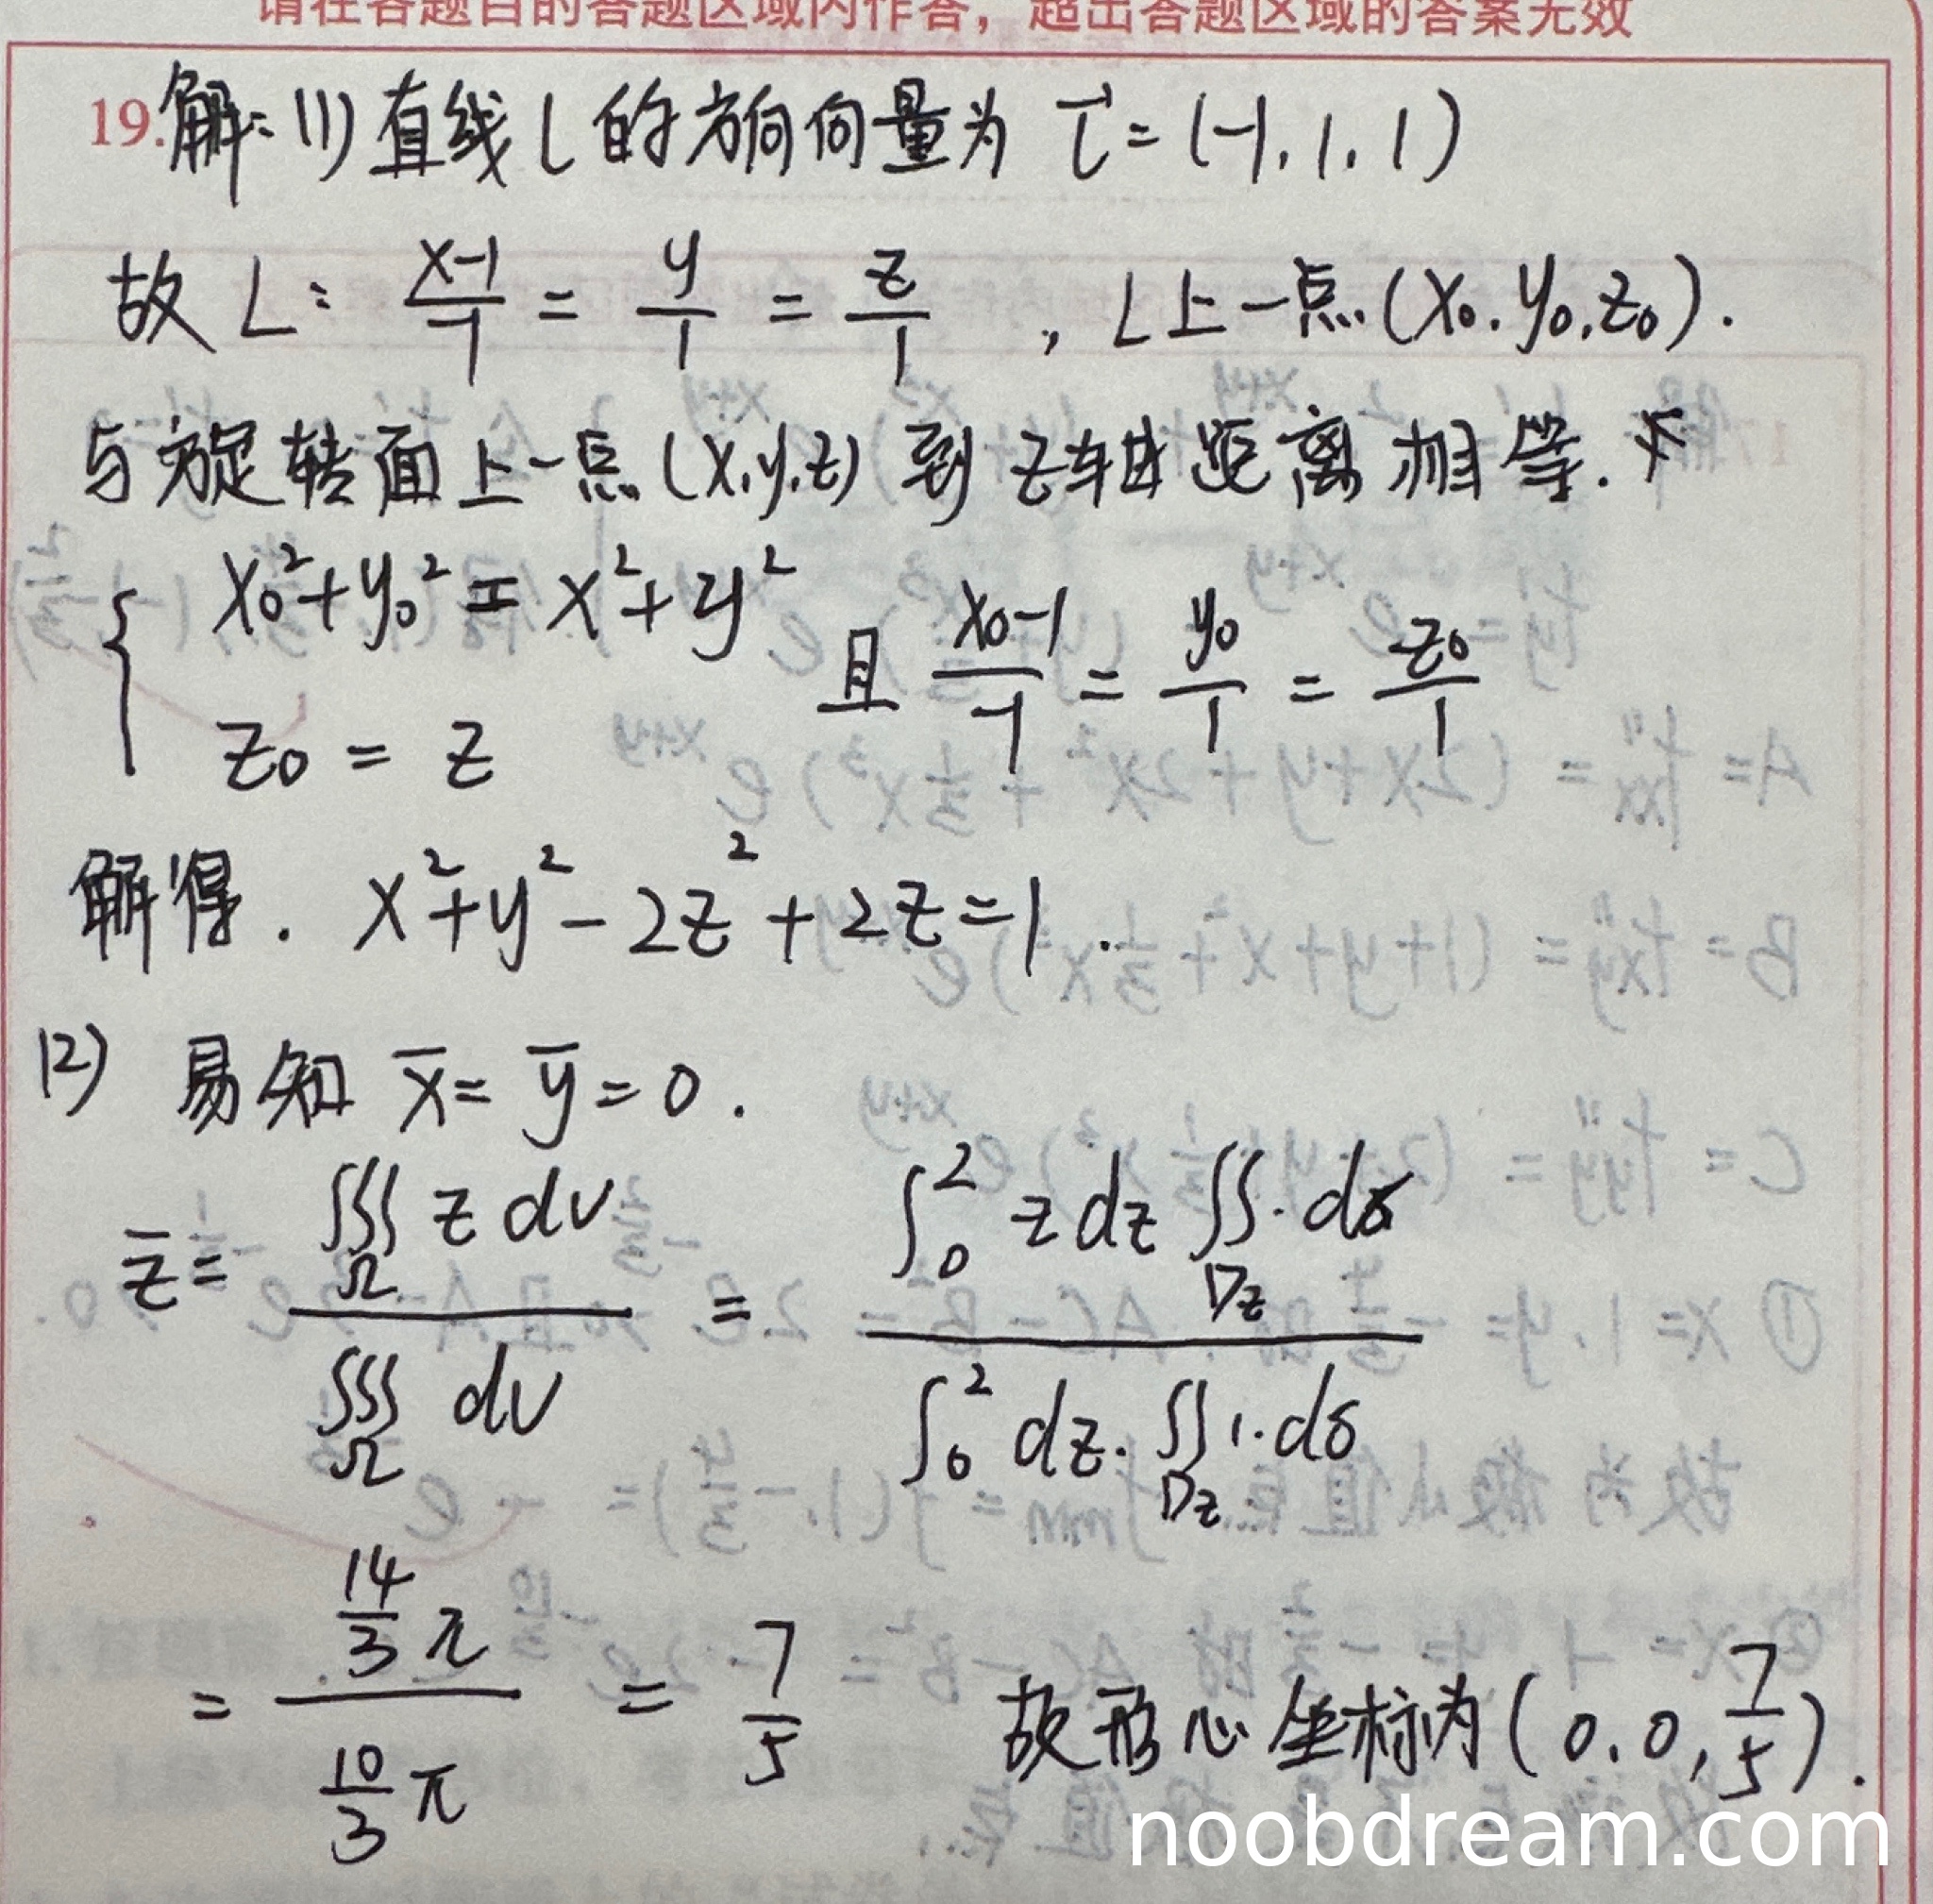 请在各题目的答题区域内作答，超出答题区域的答案无效
19.解: (1) 直线 L 的方向向量为 l⃗ = (-1, 1, 1)
故 L: (x-1)/(-1) = y/1 = z/1 , L上一点 (x₀, y₀, z₀).
与旋转面上一点 (x, y, z) 到 z轴距离相等.
{ x₀²+y₀² = x²+y²
z₀ = z
且 (x₀-1)/(-1) = y₀/1 = z₀/1
解得. x²+y²-2z²+2z=1.
(2) 易知 x̄ = ȳ = 0.
z̄ = ∭_Ω z dv / ∭_Ω dv = ∫₀² z dz ∬_{Dz} · dσ / ∫₀² dz · ∬_{Dz} 1·dσ
= (14/3 π)/(10/3 π) = 7/5 故形心坐标为 (0, 0, 7/5).
noobdream.com